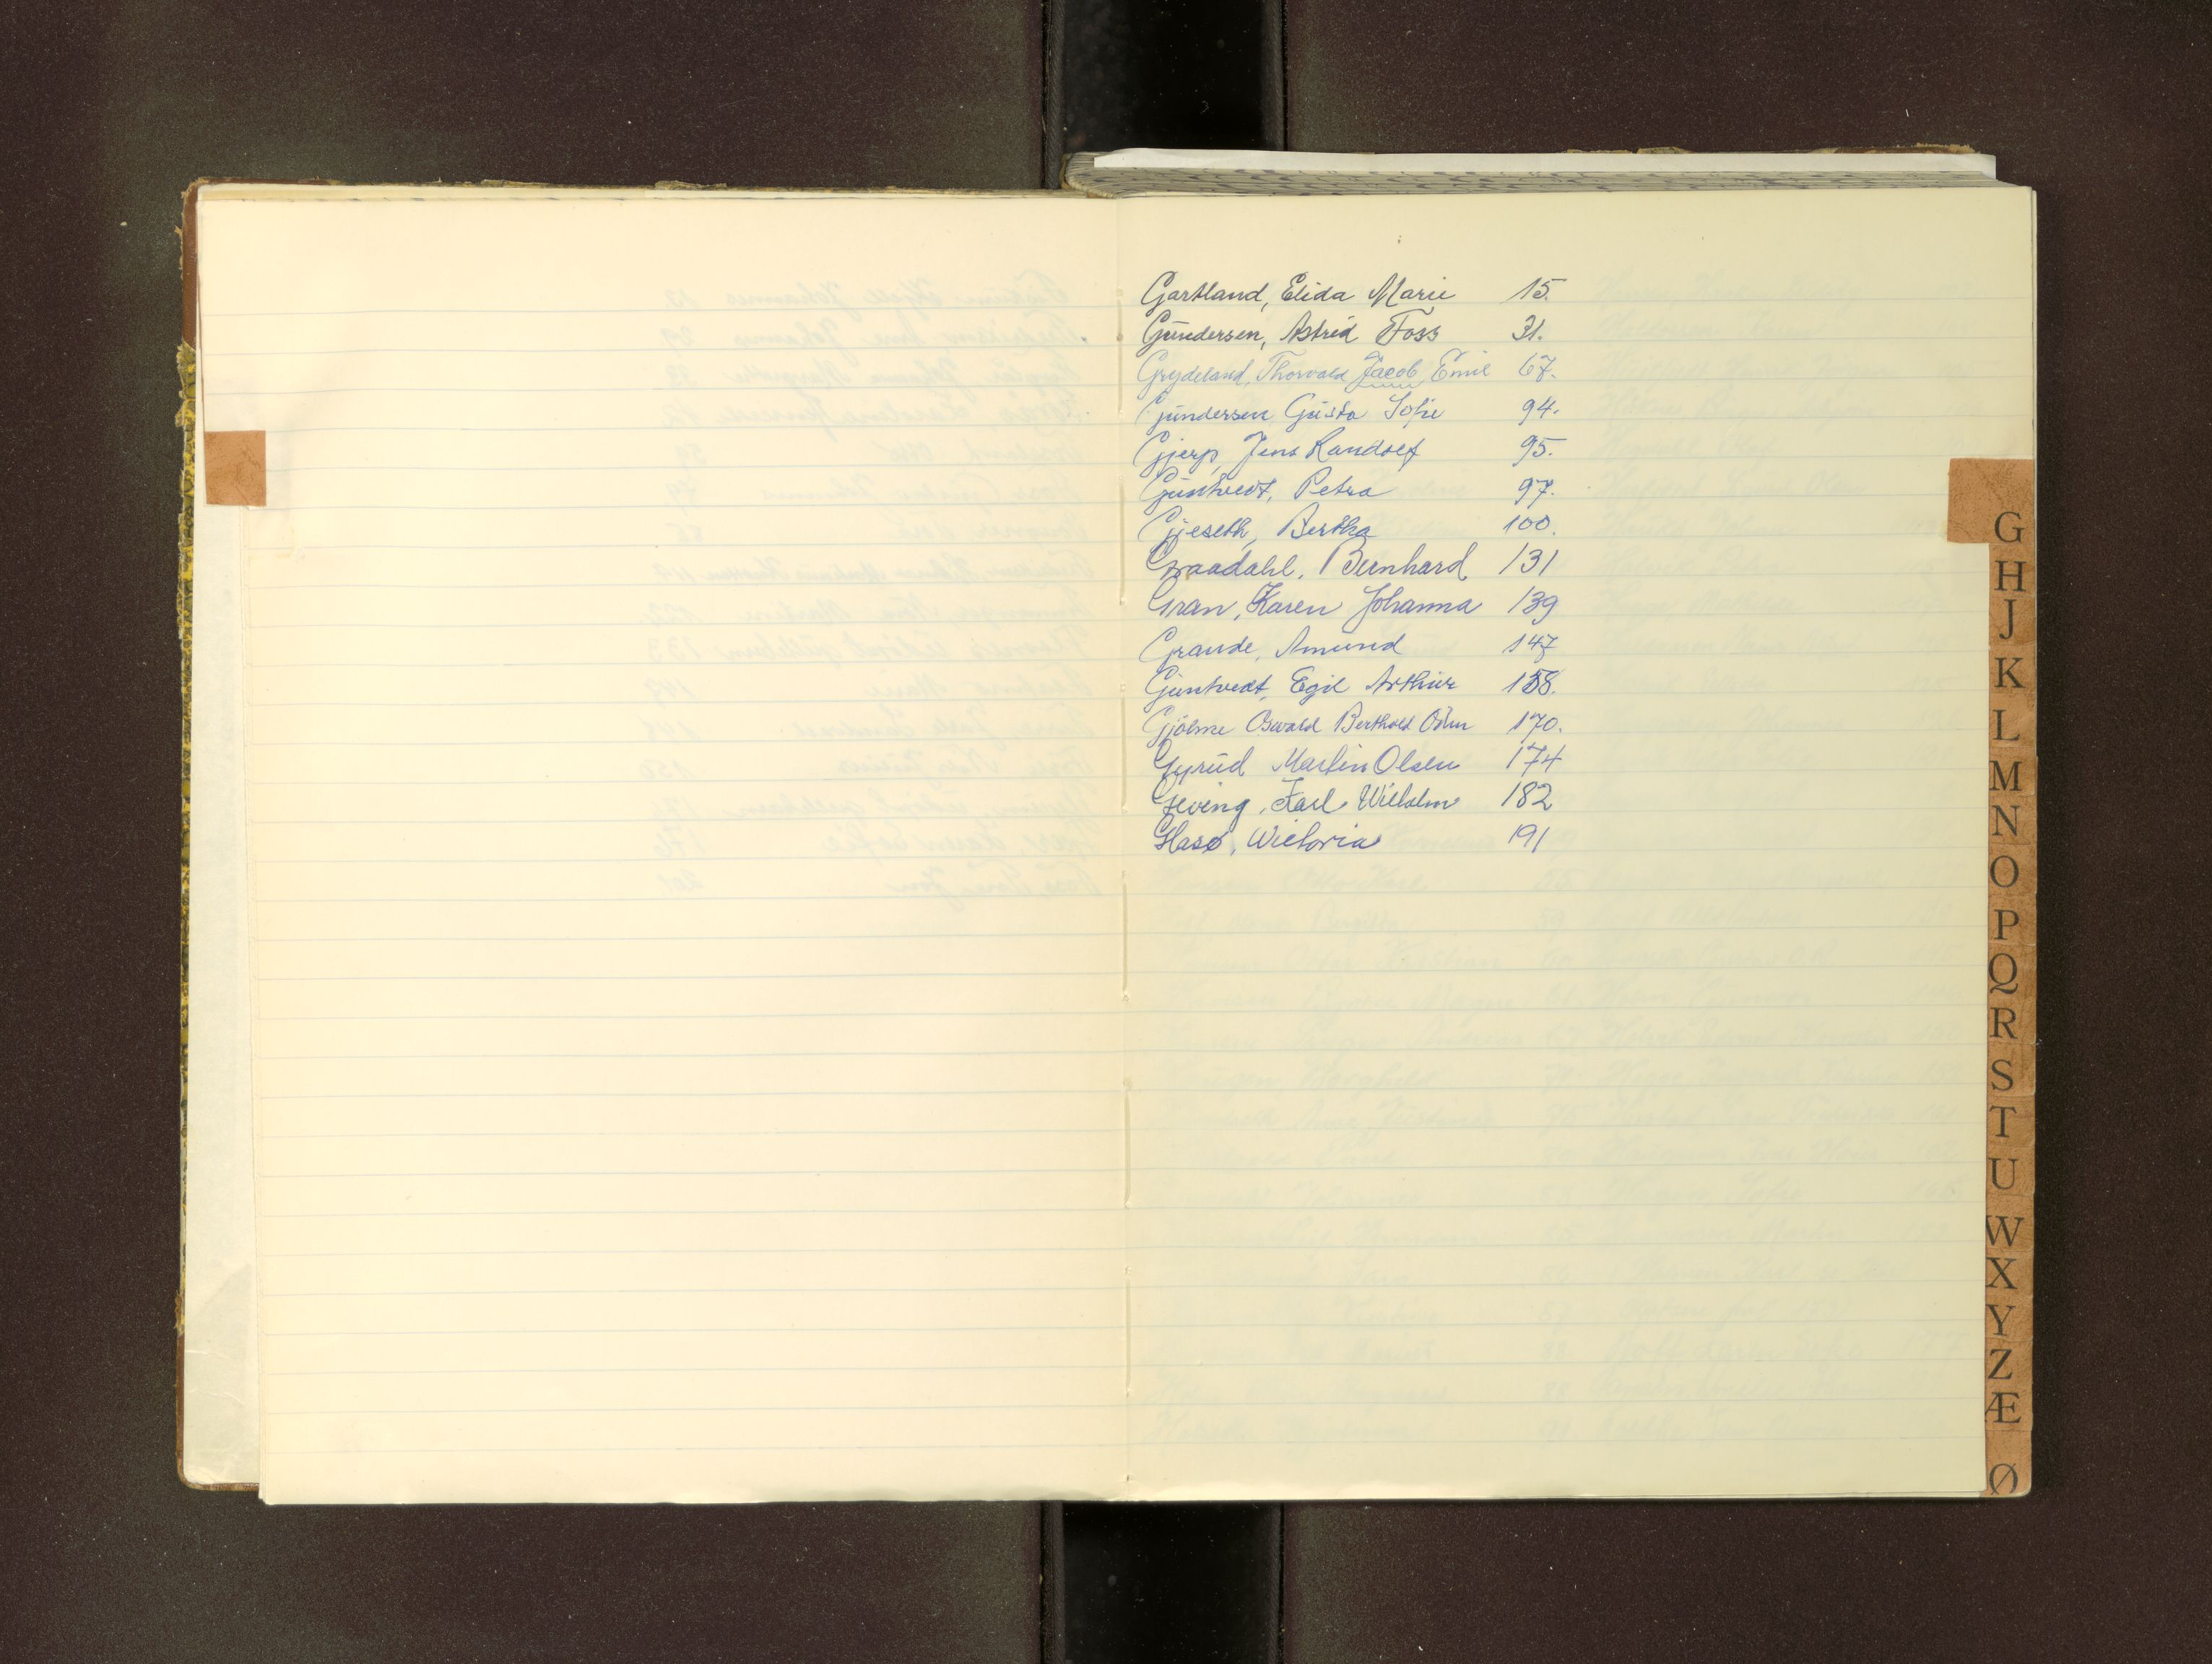 Gartland, Elida Marie 15.
Gundersen, Astrid Foss 31.
Grydeland, Thorvald Jacob Emil 67.
Gundersen Gusta Sofie 94.
Gjerp, Jens Randolf 95.
Guntvedt, Petra 97.
Gjeseth, Bertha 100.
Graadahl, Bernhard 131
Gran, Karen Johanna 139
Grande, Amund 147
Guntvedt, Egil Arthur 158.
Gjölme Oswald Berthold 170.
Martin Olsen 174
Geving, Karl Wilhelm 182
Glasø, Wictoria 191
G
H
J
K
L
M
N
O
P
Q
R
S
T
U
W
X
Y
Z
Æ
Ø